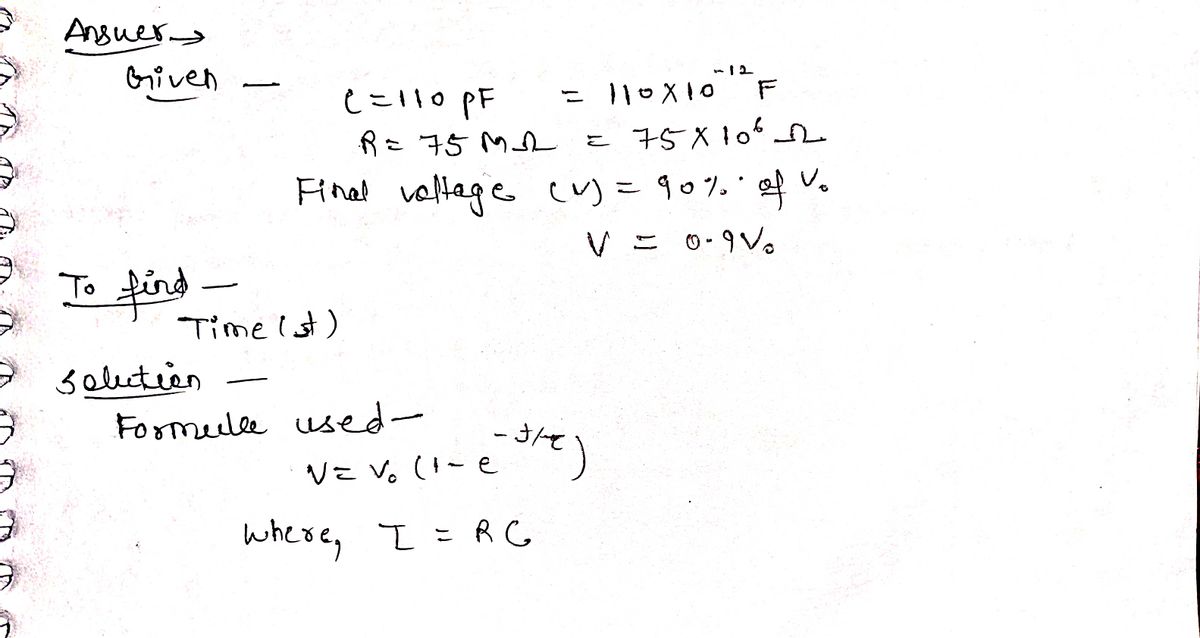 Answer →
Given —
C = 110 pF = 110 X 10⁻¹² F
R = 75 MΩ = 75 X 10⁶ Ω
Final voltage (V) = 90% of V₀
V = 0.9V₀
To find —
Time (t)
Solution —
Formulae used —
V = V₀ (1 - e^(-t/τ))
Where, τ = RC